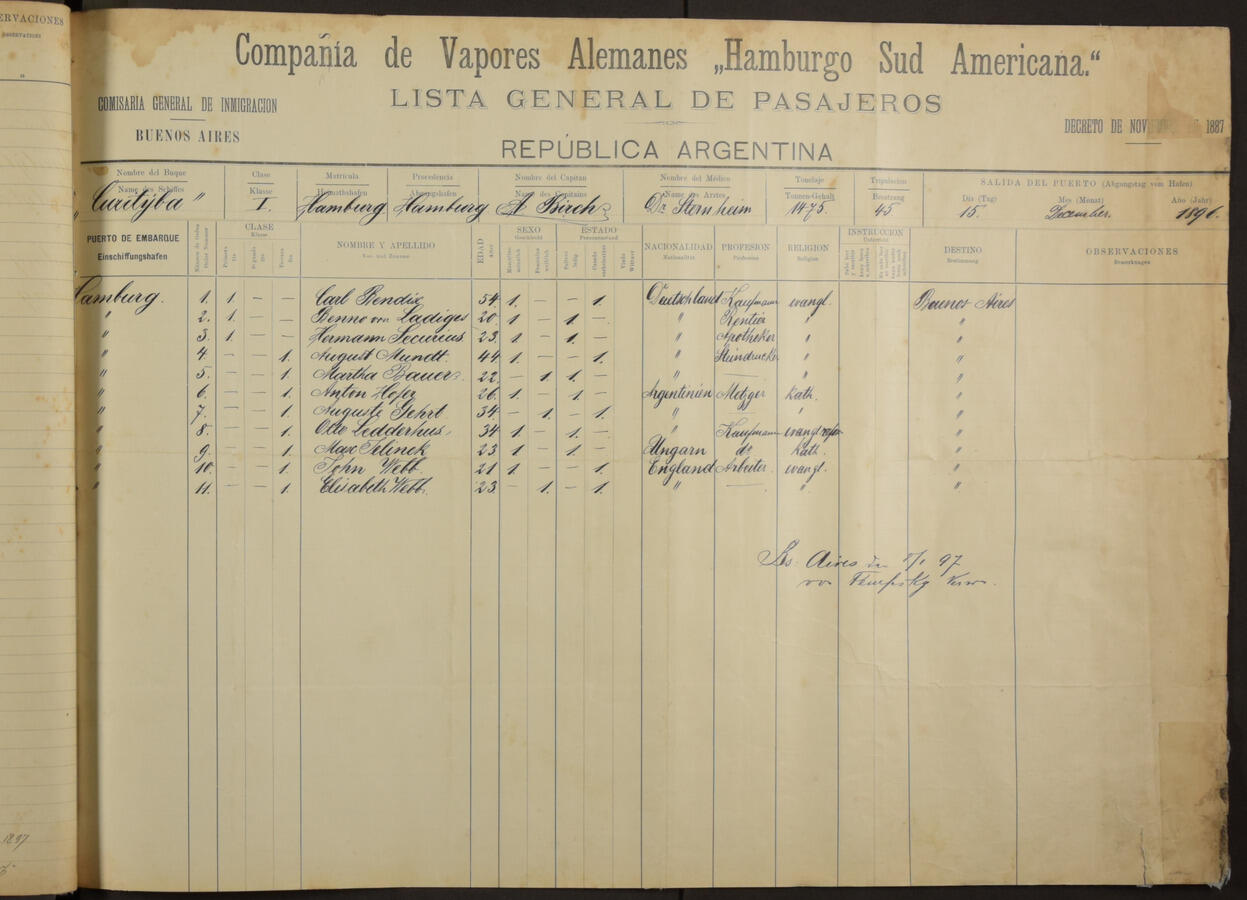 ERVACIONES
OBSERVATIONES
Compañía de Vapores Alemanes „Hamburgo Sud Americana.“
LISTA GENERAL DE PASAJEROS
COMISARÍA GENERAL DE INMIGRACION
BUENOS AIRES
DECRETO DE NOV 1887
REPÚBLICA ARGENTINA
Nombre del Buque Clase Matrícula Procedencia Nombre del Capitan Nombre del Médico Tonelaje Tripulacion SALIDA DEL PUERTO (Abgangstag vom Hafen)
Name des Schiffes Klasse Heimathshafen Abgangshafen Name des Capitains Name des Arztes Tonnen-Gehalt Besatzung Dia (Tag) Mes (Monat) Año (Jahr)
„Curityba“ I. Hamburg Hamburg A. Birch Dr. Sternheim 1475. 45 15. December. 1896.
PUERTO DE EMBARQUE CLASE NOMBRE Y APELLIDO EDAD SEXO ESTADO NACIONALIDAD PROFESION RELIGION INSTRUCCION DESTINO OBSERVACIONES
Einschiffungshafen Klasse Vor- und Zuname Alter Geschlecht Personenstand Nationalität Profession Religion Unterricht Bestimmung Bemerkungen
Hamburg. 1. 1 — — Carl Bendix 54 1. — — 1. Deutschland Kaufmann evangl. Buenos Aires
" 2. 1. — — Benno von Ladiges 20 1 — 1. " Rentier " "
" 3. 1 — — Hermann Securius 23. 1 — 1. " Apotheker " "
" 4. — — 1. August Mundt. 44 1 — — 1. " Steindrucker " "
" 5. — — 1. Martha Bauer. 22. — 1 1. " — " "
" 6. — — 1. Anton Hofer 26. 1 — 1. Argentinien Metzger kath. "
" 7. — — 1. Auguste Gehrt 34. — 1. — 1. " — " "
" 8. — — 1. Otto Ledderhus 34 1. — 1. " Kaufmann evangl. "
" 9. — — 1. Max Jelinek 23 1 — 1. Ungarn do kath. "
" 10. — — 1. John Webb. 21 1 — — 1. England Arbeiter. evangl. "
" 11. — — 1. Elisabeth Webb. 23. — 1. — 1. " — " "
Bs. Aires 97
von
1897